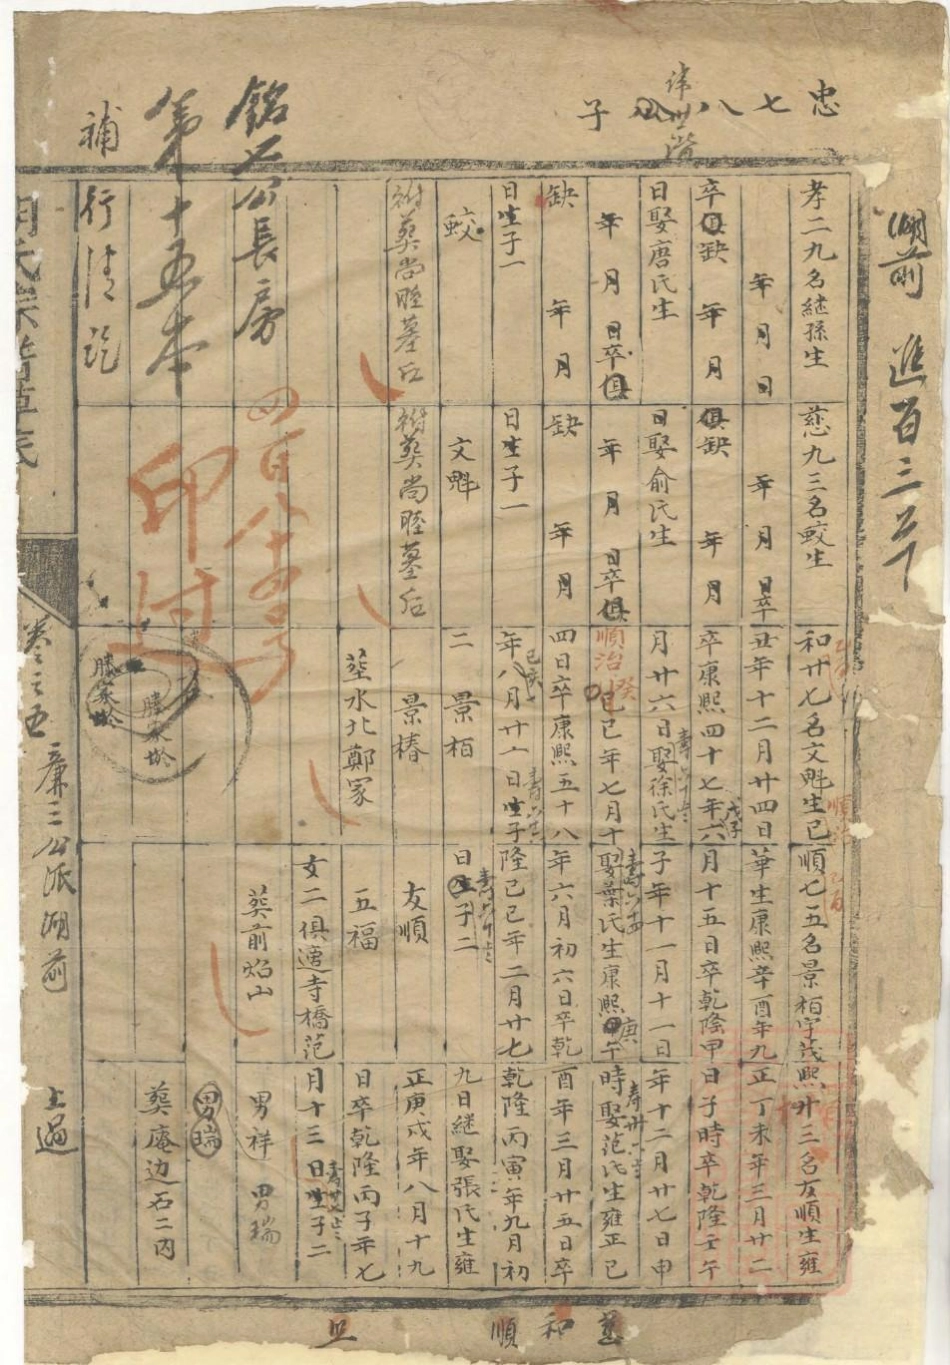 湖前 進百三
忠七八公子
諱世
銘二公長房
第十五本
補
行
孝二九名繼孫生
年月日
卒俱缺 年月
日娶唐氏生
年月日卒俱
缺 年月
日生子一
蛟
祔葬尚睦墓后
慈九三名蛟生
年月日卒
俱缺 年月
日娶俞氏生
年月日卒俱
缺 年月
日生子一
文魁
祔葬尚睦墓后
四百八十四号
印付
和廿七名文魁生己
丑年十二月廿四日
卒康熙四十七年六
戊子
月廿六日娶徐氏生
順治
癸
巳年七月十
四日卒康熙五十八
己亥
年八月廿六日生子
二 景栢
景椿
塟水北鄭家
滕家坽
滕家坽
順七五名景栢字茂
華生康熙辛酉年九
月十五日卒乾隆甲
子年十一月十一日
娶葉氏生康熙庚午
年六月初六日卒乾
隆己巳年二月廿七
日生子二
友順
五福
女二俱適寺橋范
葬前焰山
熙廿三名友順生雍
正丁未年三月廿二
日子時卒乾隆壬午
年十二月廿七日申
時娶范氏生雍正己
酉年三月廿五日卒
乾隆丙寅年九月初
九日繼娶張氏生雍
正庚戌年八月十九
日卒乾隆丙子年七
月十三日生子二
男祥 男瑞
男瑞
葬庵边石二丙
卷之五
廉三公派湖前
慈和順